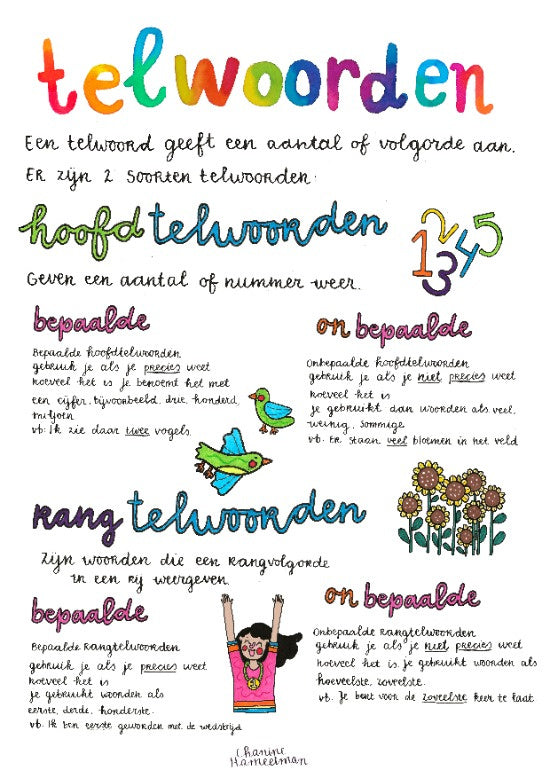 telwoorden
Een telwoord geeft een aantal of volgorde aan.
Er zijn 2 soorten telwoorden.
hoofdtelwoorden
1 2 3 4 5
Geven een aantal of nummer weer.
bepaalde
Bepaalde hoofdtelwoorden
gebruik je als je precies weet
hoeveel het is je benoemt het met
een cijfer. bijvoorbeeld, drie, honderd,
miljoen
vb: Ik zie daar twee vogels.
onbepaalde
Onbepaalde hoofdtelwoorden
gebruik je als je niet precies weet
hoeveel het is
je gebruikt dan woorden als veel,
weinig, sommige
vb. Er staan veel bloemen in het veld
rangtelwoorden
Zijn woorden die een rangvolgorde
in een rij weergeven.
bepaalde
Bepaalde rangtelwoorden
gebruik je als je precies weet
hoeveel het is
je gebruikt woorden als
eerste, derde, honderste.
vb. Ik ben eerste geworden met de wedstrijd
onbepaalde
Onbepaalde rangtelwoorden
gebruik je als je niet precies weet
hoeveel het is. je gebruikt woorden als
hoeveelste, zoveelste.
vb. Je bent voor de zoveelste keer te laat
Chanine
Hameelman